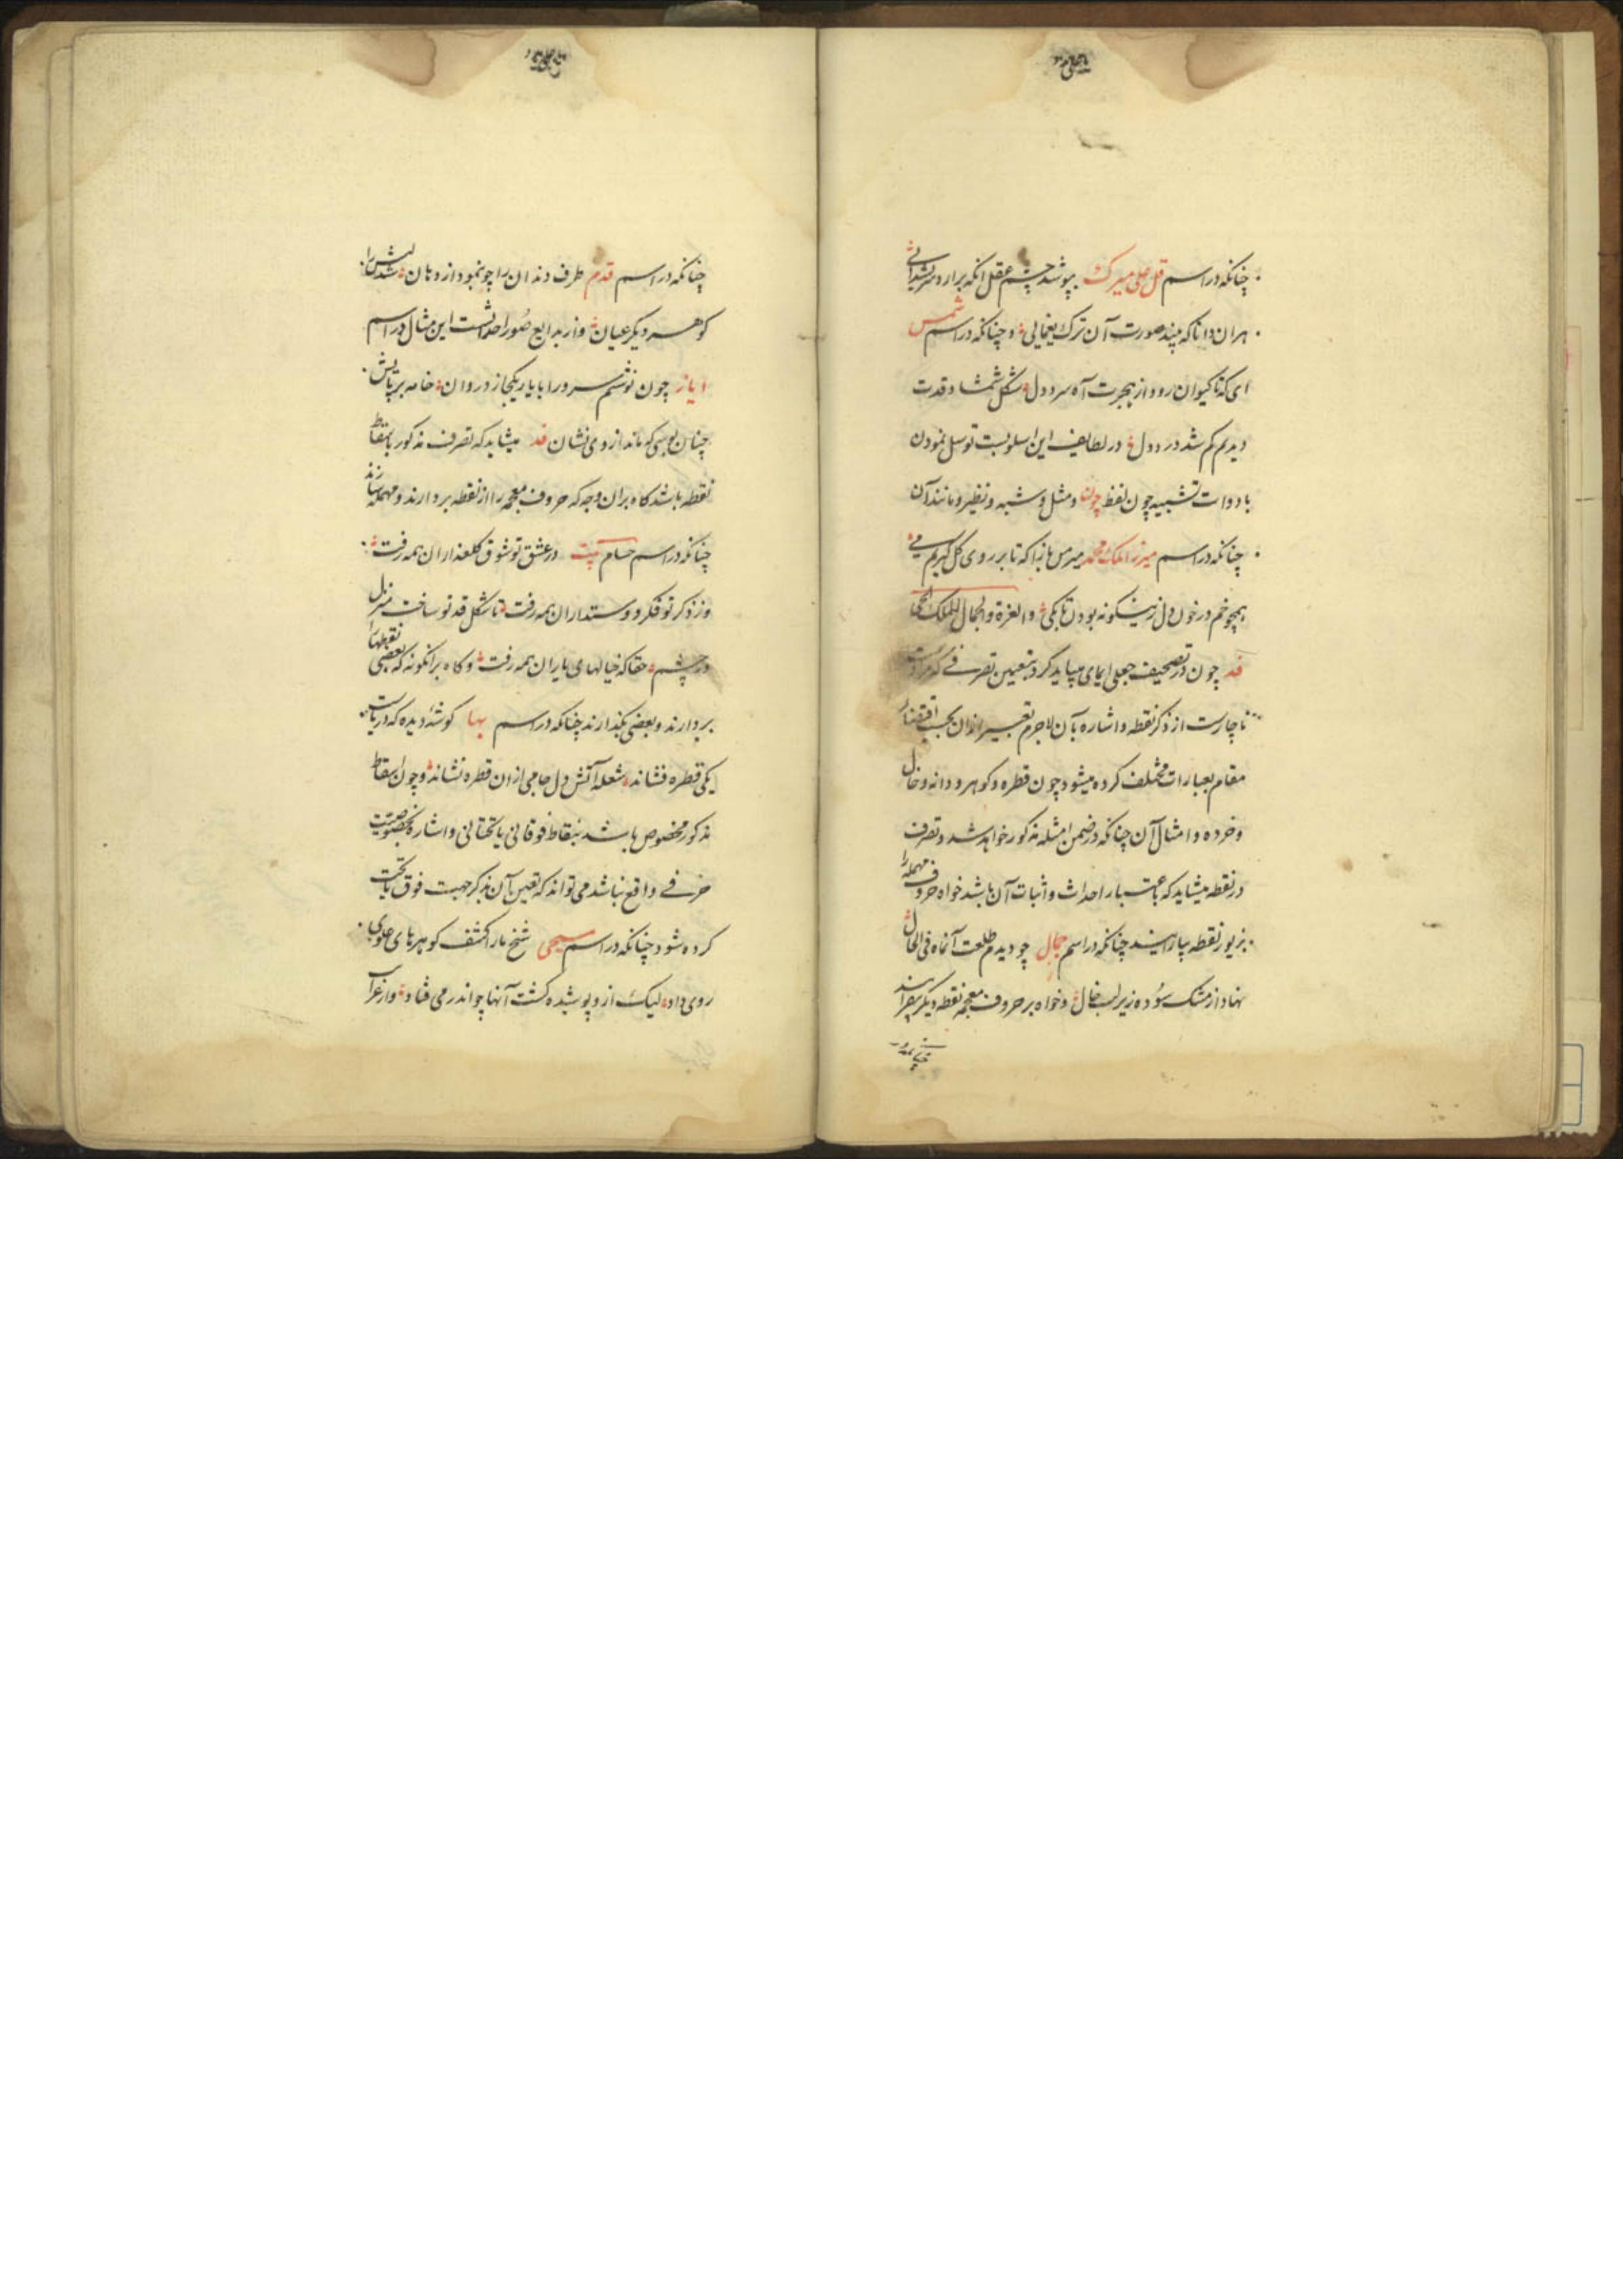 چنانکه در اسم قل علی میرک بپوشد چشم عقل انکه برارد سر بشیدائی
هران دانا که بیند صورت آن ترک یغمایی و چنانکه در اسم شمس
ای که تا کیوان رود از هجرت آه سرد دل شکل شمشاد قدت
دیدم کم شد درد دل در لطایف این اسلوبست توسل نمودن
بادوات تشبیه چون لفظ چون و مثل و شبه و نظیر و مانند آن
چنانکه در اسم میرزا ملک محمد میرس بازا که تا بر روی گل گیریم می
همچو خم در خون دل زینگونه بودن تا بکی و العزة والجمال للملک
قد چون در تصحیف جعلی ایمای میباید کرد بتعیین تصرفی که مراد است
ناچارست از ذکر نقطه و اشاره بآن لاجرم تعبیر ازان بحسب اقتضاء
مقام بعبارات مختلف کرده میشود چون قطره و کوهر و دانه و خال
و خرده و امثال آن چنانکه در ضمن امثله مذکور خواهد شد و تصرف
در نقطه میشاید که باعتبار احداث و اثبات آن باشد خواه حروف مهمله را
بزیور نقطه بیارایند چنانکه در اسم جمال چو دیدم طلعت آنماه فی الحال
نهاد از مشک سُوده زیر لب خال و خواه بر حروف معجمه نقطه دیکر بیفزایند
چنانکه در
چنانکه در اسم قدم طرف دندان را چو بنمود از دهان شد لبش را
کوهر دیکر عیان و از بدایع صُور احداثست این مثال در اسم
ایاز چون نوشتم سرو را با یار یکجا از دروان خامه بر پایش
چنان بوسی که ماند از وی نشان قد میشاید که تصرف مذکور باسقاط
نقطه باشد کاه بران وجه که حروف معجمه را از نقطه بردارند و مهمله سازند
چنانکه در اسم حسام بیت در عشق تو شوق کلعذاران همه رفت
وز ذکر تو فکر دوستداران همه رفت تا شکل قد تو ساخت منزل
در چشم حقا که خیالهای یاران همه رفت و کاه برانکونه که بعضی نقطها را
بردارند و بعضی بکذارند چنانکه در اسم بها کوشهٔ دیده که دریاست
یکی قطره فشاند شعله آتش دل جامی ازان قطره نشاند و چون اسقاط
مذکور مخصوص باشد بنقاط فوقانی یا تحتانی و اشاره بخصوصیت
حرفی واقع نباشد می تواند که تعیین آن بذکر جهت فوق یا تحت
کرده شود چنانکه در اسم مسیحی شیخ ما را کشف کوهرهای علوی
روی داد لیک ازو پوشیده کشت آنها چو اندر می فتاد و از غرایب